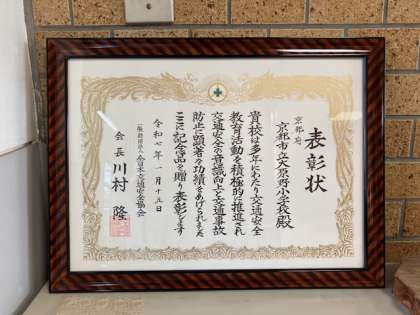 表彰状
京都府
京都市立大原野小学校殿
貴校は多年にわたり交通安全
教育活動を積極的に推進され
交通安全の意識向上と交通事故
防止に顕著な功績をあげられました
ここに記念品を贈り表彰します
令和七年一月十五日
一般財団法人 全日本交通安全協会
会長 川村 隆